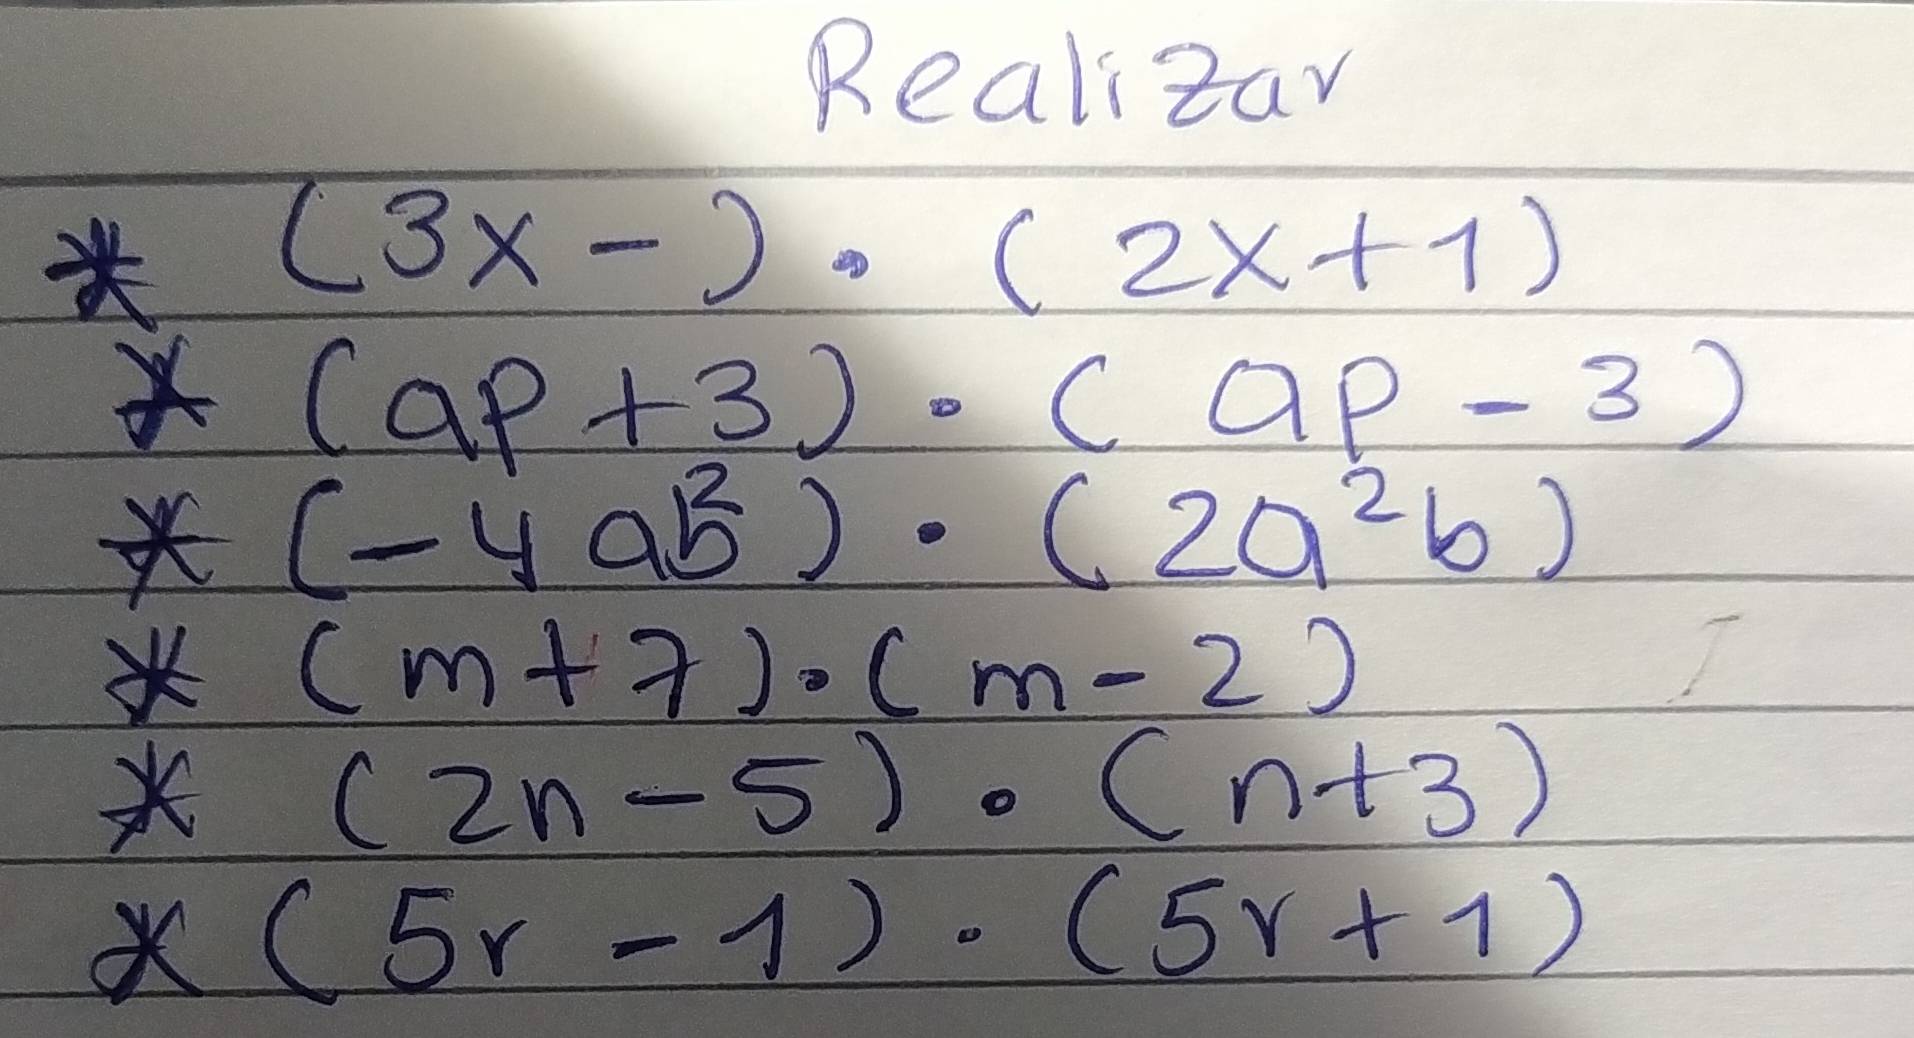 Realizar
* (3x - ) . (2x + 1)
* (ap + 3) . (ap - 3)
* (-4ab²) . (2a²b)
* (m + 7) . (m - 2)
* (2n - 5) . (n + 3)
* (5r - 1) . (5r + 1)